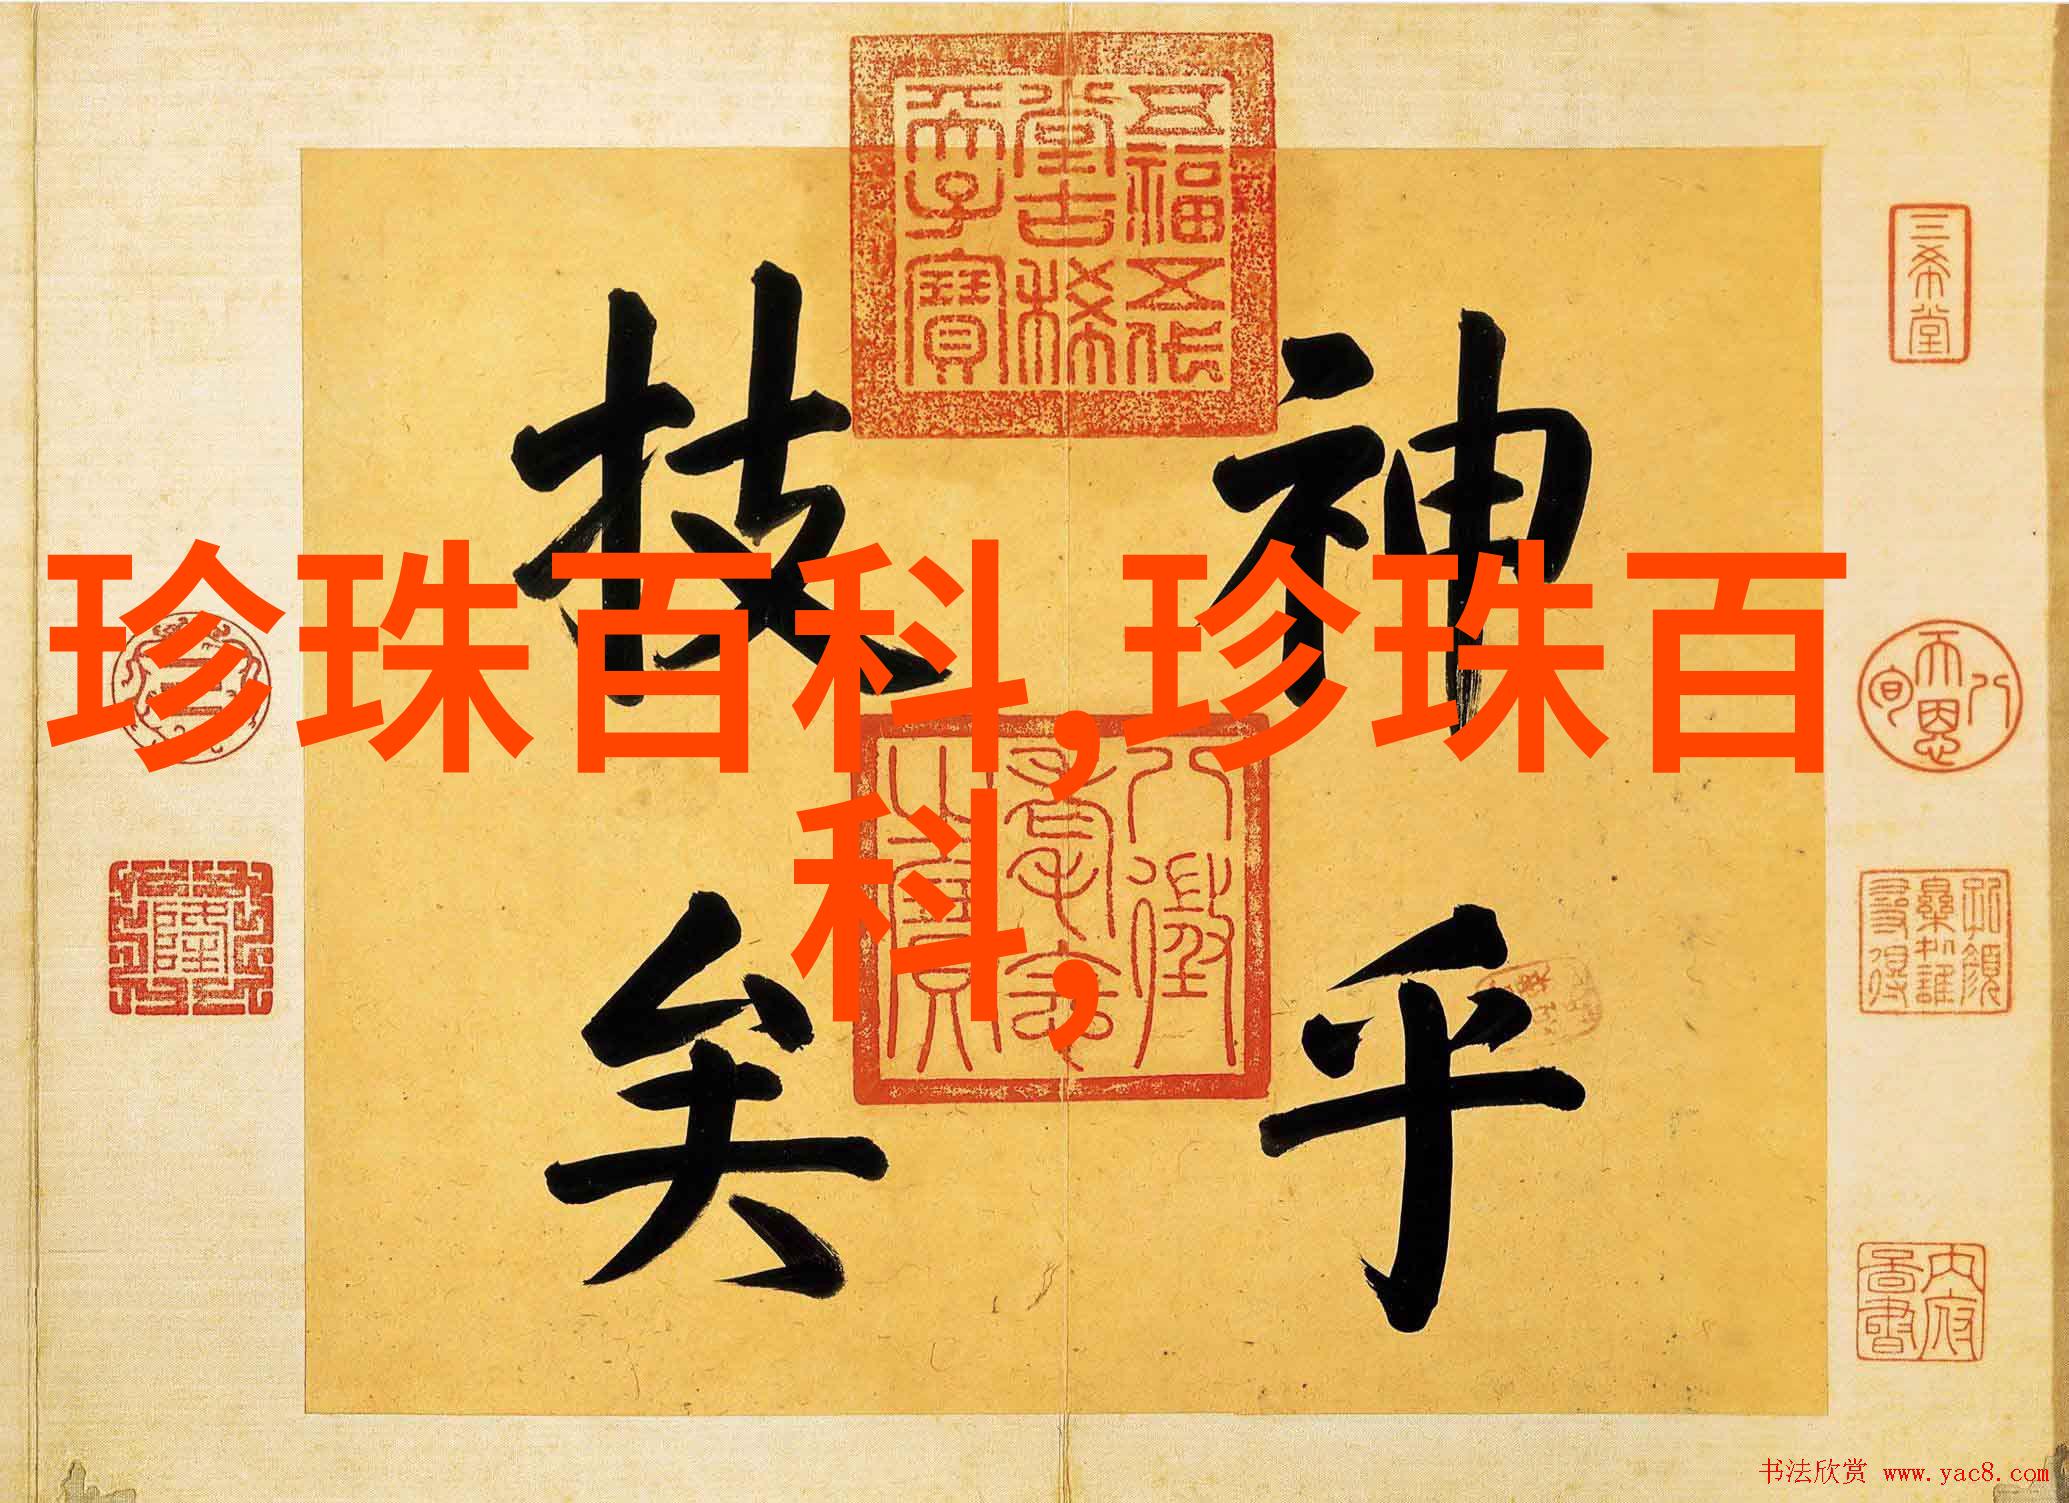 珍珠百科,珍珠百
科,
神乎
技矣
五福五代
堂古稀
天子寶
八徵
耄念
之寶
三希堂
八
天恩
旬
內府
书法欣赏 www.yac8.com